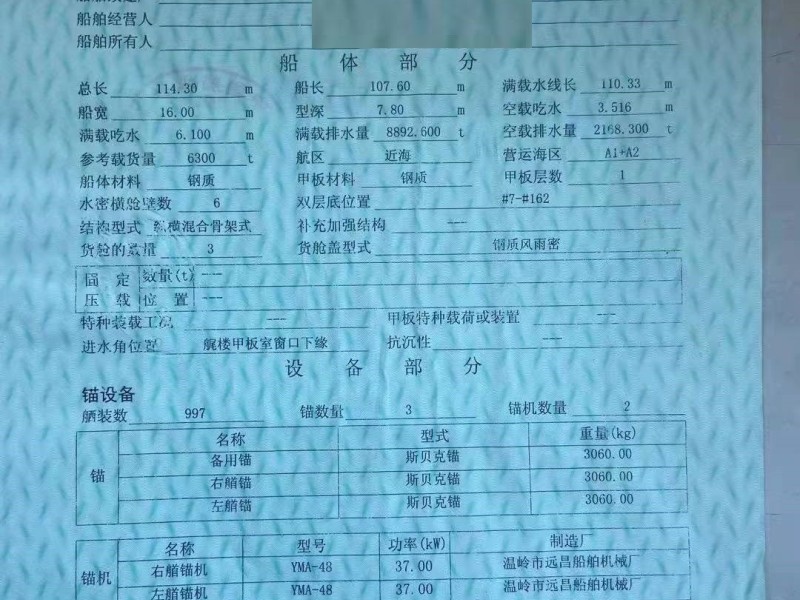 船舶经营人
船舶所有人
船 体 部 分
总长 114.30 m 船长 107.60 m 满载水线长 110.33 m
船宽 16.00 m 型深 7.80 m 空载吃水 3.516 m
满载吃水 6.100 m 满载排水量 8892.600 t 空载排水量 2168.300 t
参考载货量 6300 t 航区 近海 营运海区 A1+A2
船体材料 钢质 甲板材料 钢质 甲板层数 1
水密横舱壁数 6 双层底位置 #7-#162
结构型式 纵横混合骨架式 补充加强结构 ---
货舱的数量 3 货舱盖型式 钢质风雨密
固 定 数量(t) ---
压 载 位 置 ---
特种装载工况 --- 甲板特种载荷或装置 ---
进水角位置 艉楼甲板室窗口下缘 抗沉性 ---
设 备 部 分
锚设备
舾装数 997 锚数量 3 锚机数量 2
名称 型式 重量(kg)
备用锚 斯贝克锚 3060.00
锚 右艏锚 斯贝克锚 3060.00
左艏锚 斯贝克锚 3060.00
名称 型号 功率(kW) 制造厂
锚机 右艏锚机 YMA-48 37.00 温岭市远昌船舶机械厂
左艏锚机 YMA-48 37.00 温岭市远昌船舶机械厂